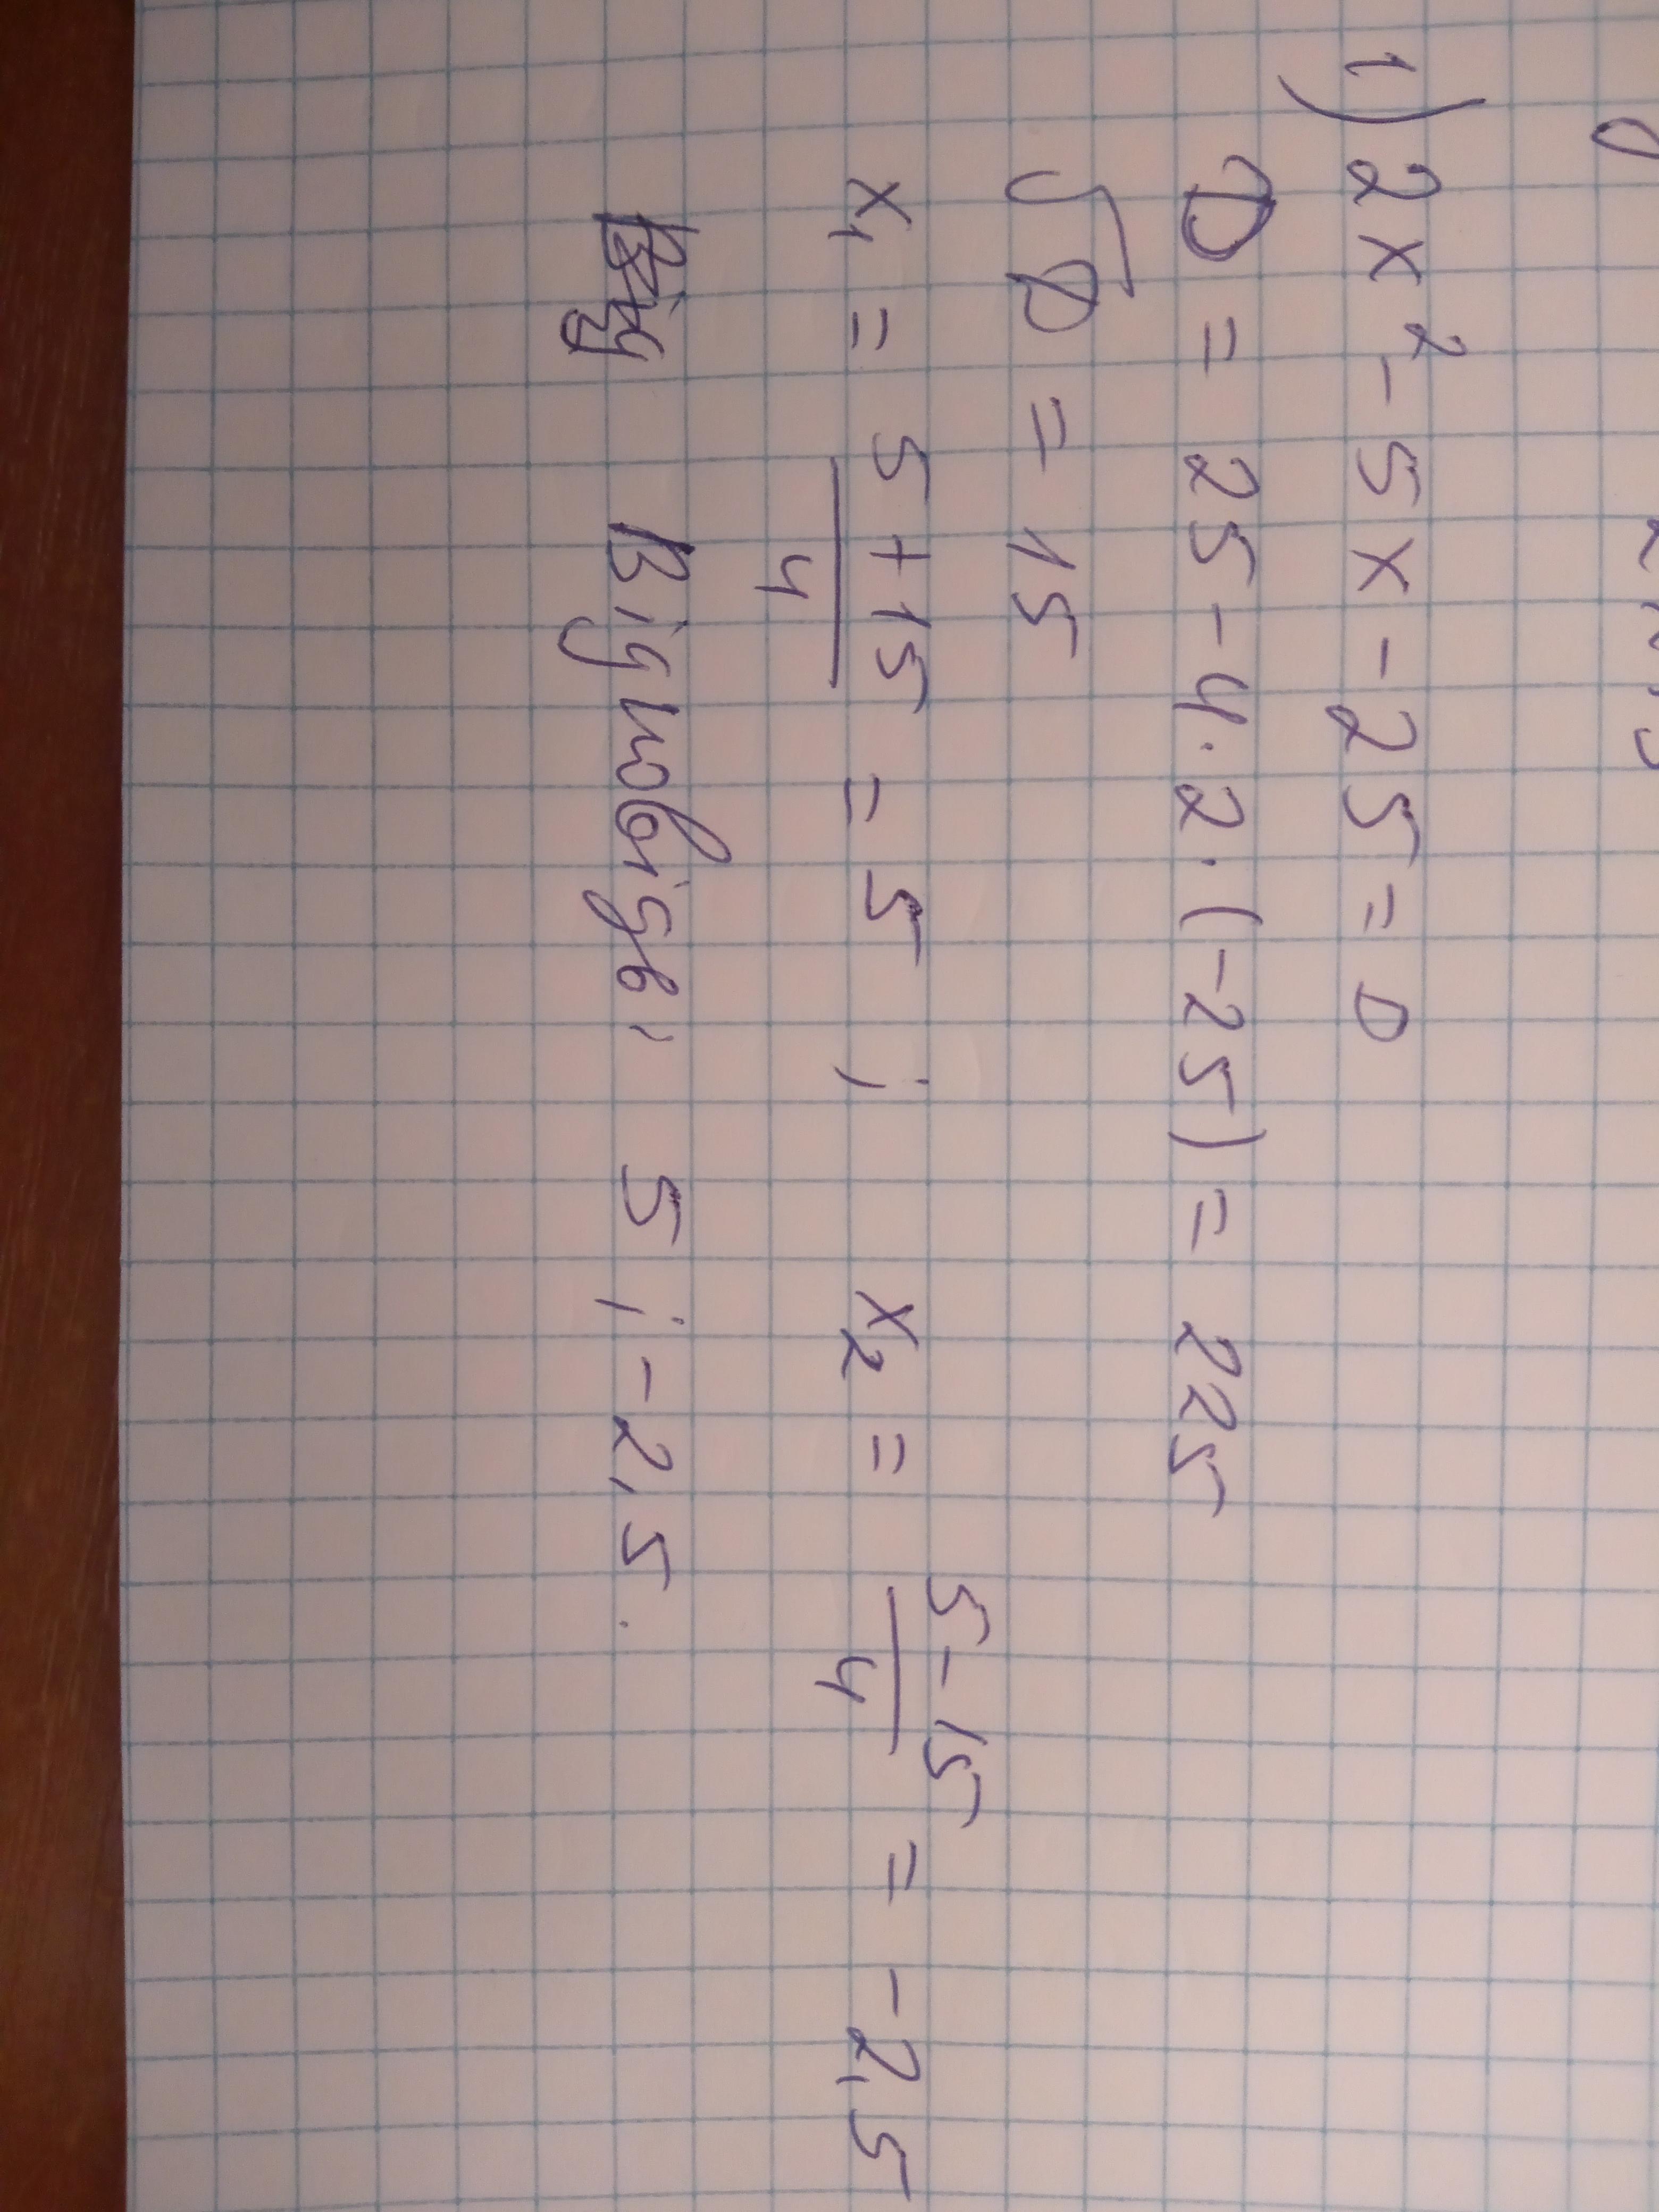 1) 2x² - 5x - 25 = 0
D = 25 - 4·2·(-25) = 225
√D = 15
x₁ = (5 + 15)/4 = 5 ; x₂ = (5 - 15)/4 = -2,5
Відповідь: 5 ; -2,5.